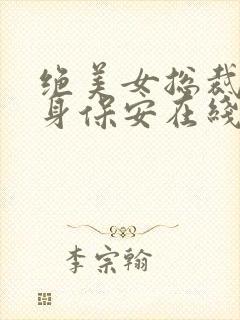 绝美女总裁
身保安在线
李宗翰